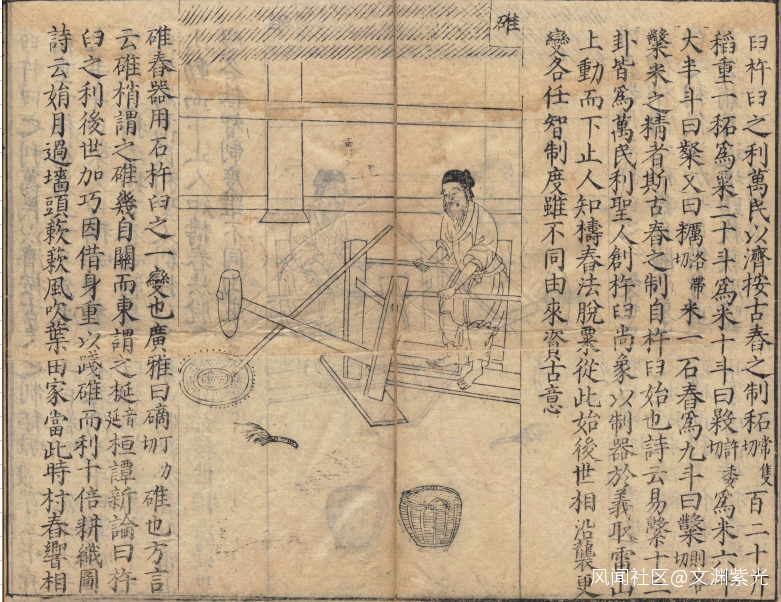 臼杵臼之利萬民以濟按古舂之制䄷常隻切百二十斤
稻重一䄷爲粟二十斗爲米十斗曰毇許委切爲米六斗
大半斗曰粲又曰糲洛帶切米一石舂爲九斗曰糳則各切
糳米之精者斯古舂之制自杵臼始也詩云易繫十三
卦皆爲萬民利聖人創杵臼尚象以制器於義取雷山
上動而下止人知擣舂法脫粟從此始後世相沿襲更
變各任智制度雖不同由來資古意
碓
碓舂器用石杵臼之一變也廣雅曰丁力切碓也方言
云碓梢謂之碓幾自關而東謂之梴音延桓譚新論曰杵
臼之利後世加巧因借身重以踐碓而利十倍耕織圖
詩云娟月過墻頭簌簌風吹葉田家當此時村舂響相
风闻社区@文渊紫光